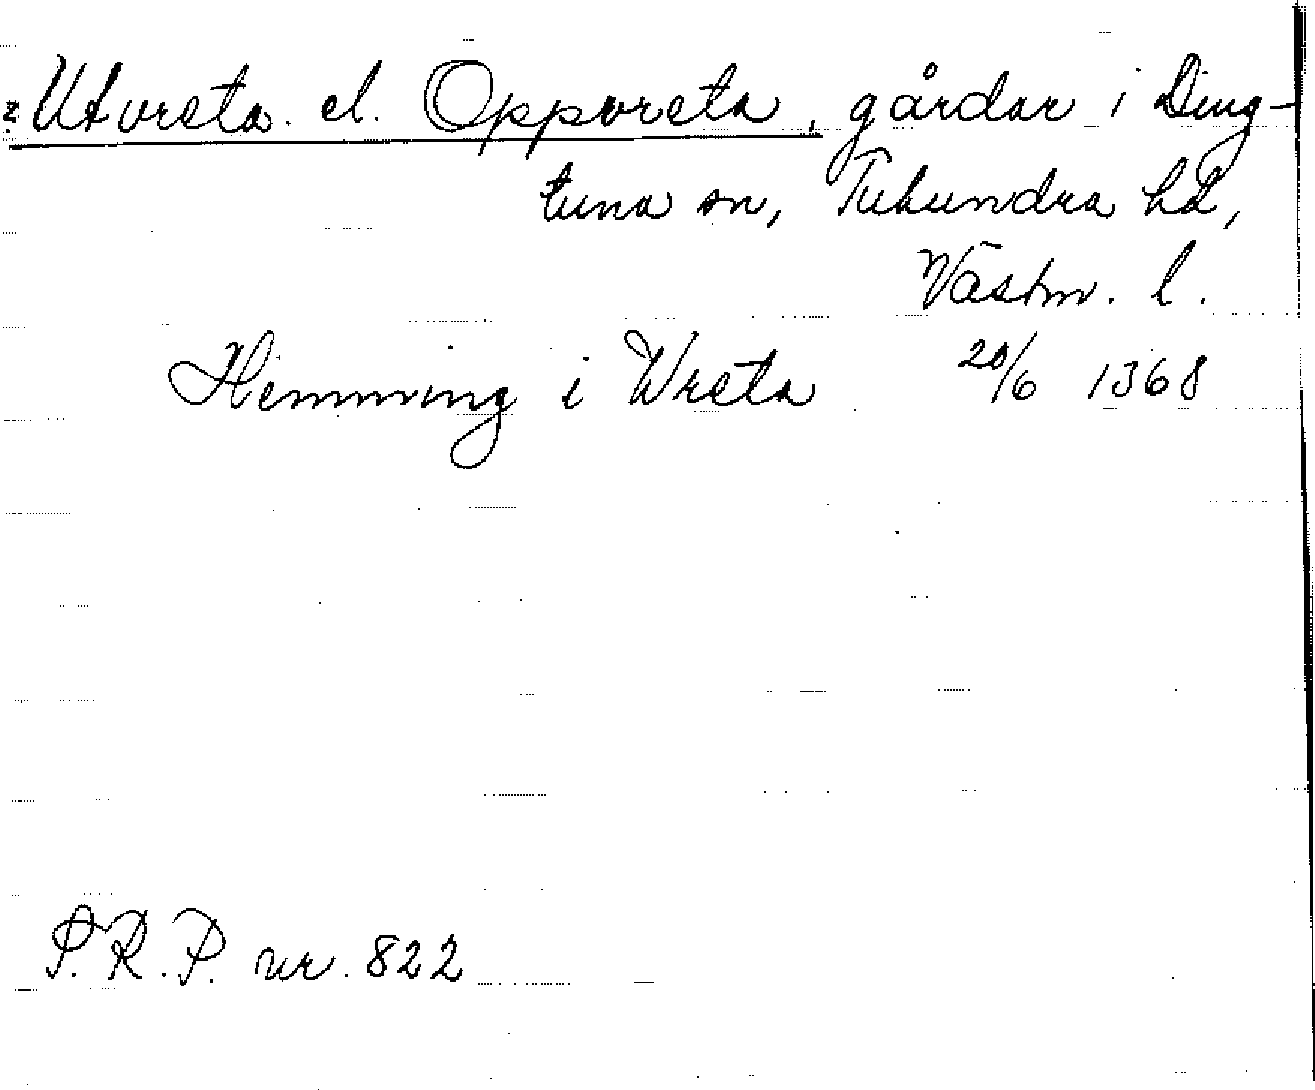 Utvreta. el. Oppvreta, gårdar i Ding-
tuna sn, Tuhundra hd,
Västm. l.
Hemming i Wreta 20/6 1368
P.R.P. nr. 822